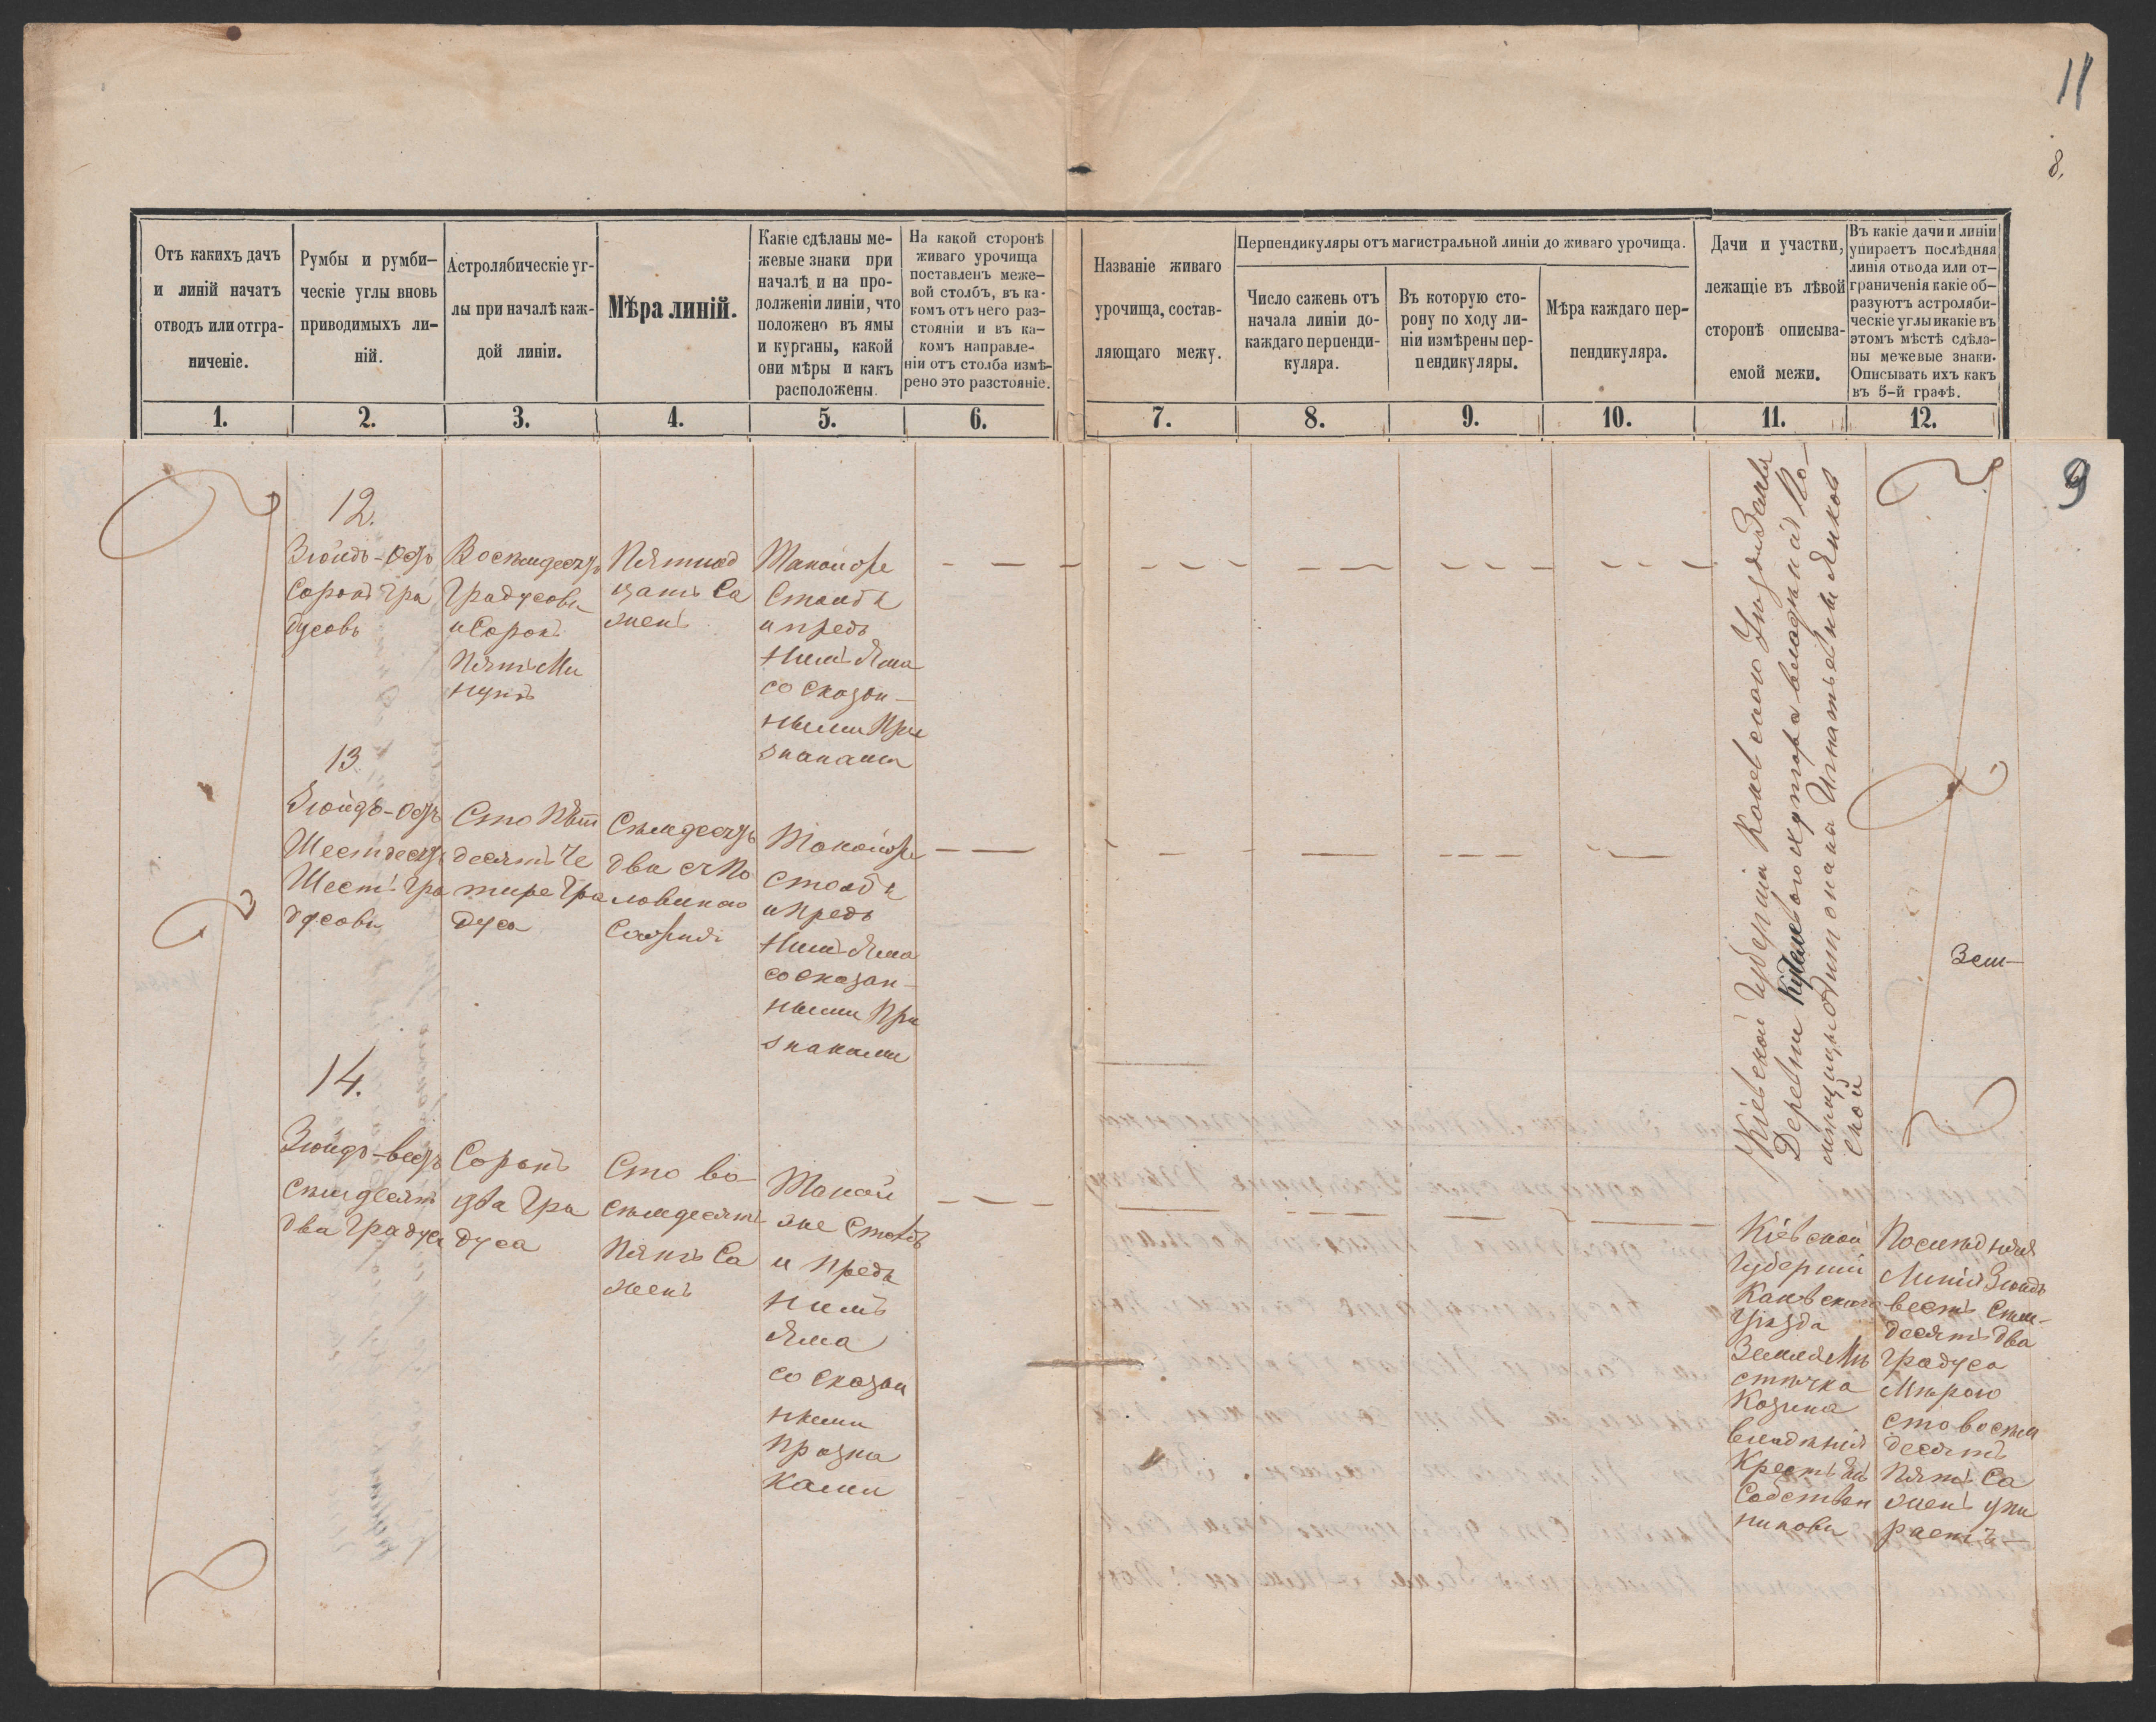 11
8.
Отъ какихъ дачъ
и линій начатъ
отводъ или отгра-
ниченіе.
Румбы и румби-
ческіе углы вновь
приводимыхъ ли-
ній.
Астролябическіе уг-
лы при началѣ каж-
дой линіи.
Мѣра линій.
Какіе сдѣланы ме-
жевые знаки при
началѣ и на про-
долженіи линіи, что
положено въ ямы
и курганы, какой
они мѣры и какъ
расположены.
На какой сторонѣ
живаго урочища
поставленъ меже-
вой столбъ, въ ка-
комъ отъ него раз-
стояніи и въ ка-
комъ направле-
ніи отъ столба измѣ-
рено это разстояніе.
Названіе живаго
урочища, состав-
ляющаго межу.
Перпендикуляры отъ магистральной линіи до живаго урочища.
Число сажень отъ
начала линіи до-
каждаго перпенди-
куляра.
Въ которую сто-
рону по ходу ли-
ніи измѣрены пер-
пендикуляры.
Мѣра каждаго пер-
пендикуляра.
Дачи и участки,
лежащіе въ лѣвой
сторонѣ описыва-
емой межи.
Въ какіе дачи и линіи
упираетъ послѣдняя
линія отвода или от-
граниченія какіе об-
разуютъ астроляби-
ческіе углы и какіе въ
этомъ мѣстѣ сдѣла-
ны межевые знаки.
Описывать ихъ какъ
въ 5-й графѣ.
1. 2. 3. 4. 5. 6. 7. 8. 9. 10. 11. 12.
9
12.
Зюйдъ-Остъ
Сорокъ Гра
дусовъ
Восемьдесятъ
Градусовъ
и Сорокъ
Пять Ми
нутъ
Пятнад
цать Са
женъ
Такой же
Столбъ
и предъ
Нимъ Яма
со Сказан-
ными При
знаками
13
Зюйдъ-Остъ
Шестьдесятъ
Шесть Гра
дусовъ
Сто Пять
десятъ Че
тыре Гра
дуса
Семьдесятъ
два съ По
ловиною
Сажня
Такой же
столбъ
и предъ
Нимъ Яма
со сказан-
ными При
знаками
14.
Зюйдъ-вестъ
Семьдесятъ
два Градуса
Сорокъ
два Гра
дуса
Сто во
семьдесятъ
Пять Са
женъ
Такой
же Столбъ
и предъ
Нимъ
Яма
со сказан
ными
призна
ками
Кіевской Губерніи Каневскаго Уѣзда Земля
Деревни хутора владѣнія По-
мѣщицы Антонины Игнатьевны Янков
ской
Зем-
Кіевской
Губерніи
Каневскаго
Уѣзда
Земля Мѣ
стечка
Козина
владѣнія
Крестьянъ
Собствен
никовъ
Послѣдняя
Линія Зюйдъ
вестъ Семь-
десятъ два
градуса
Мѣрою
сто восемь
десятъ
Пять Са
женъ упи
раетъ